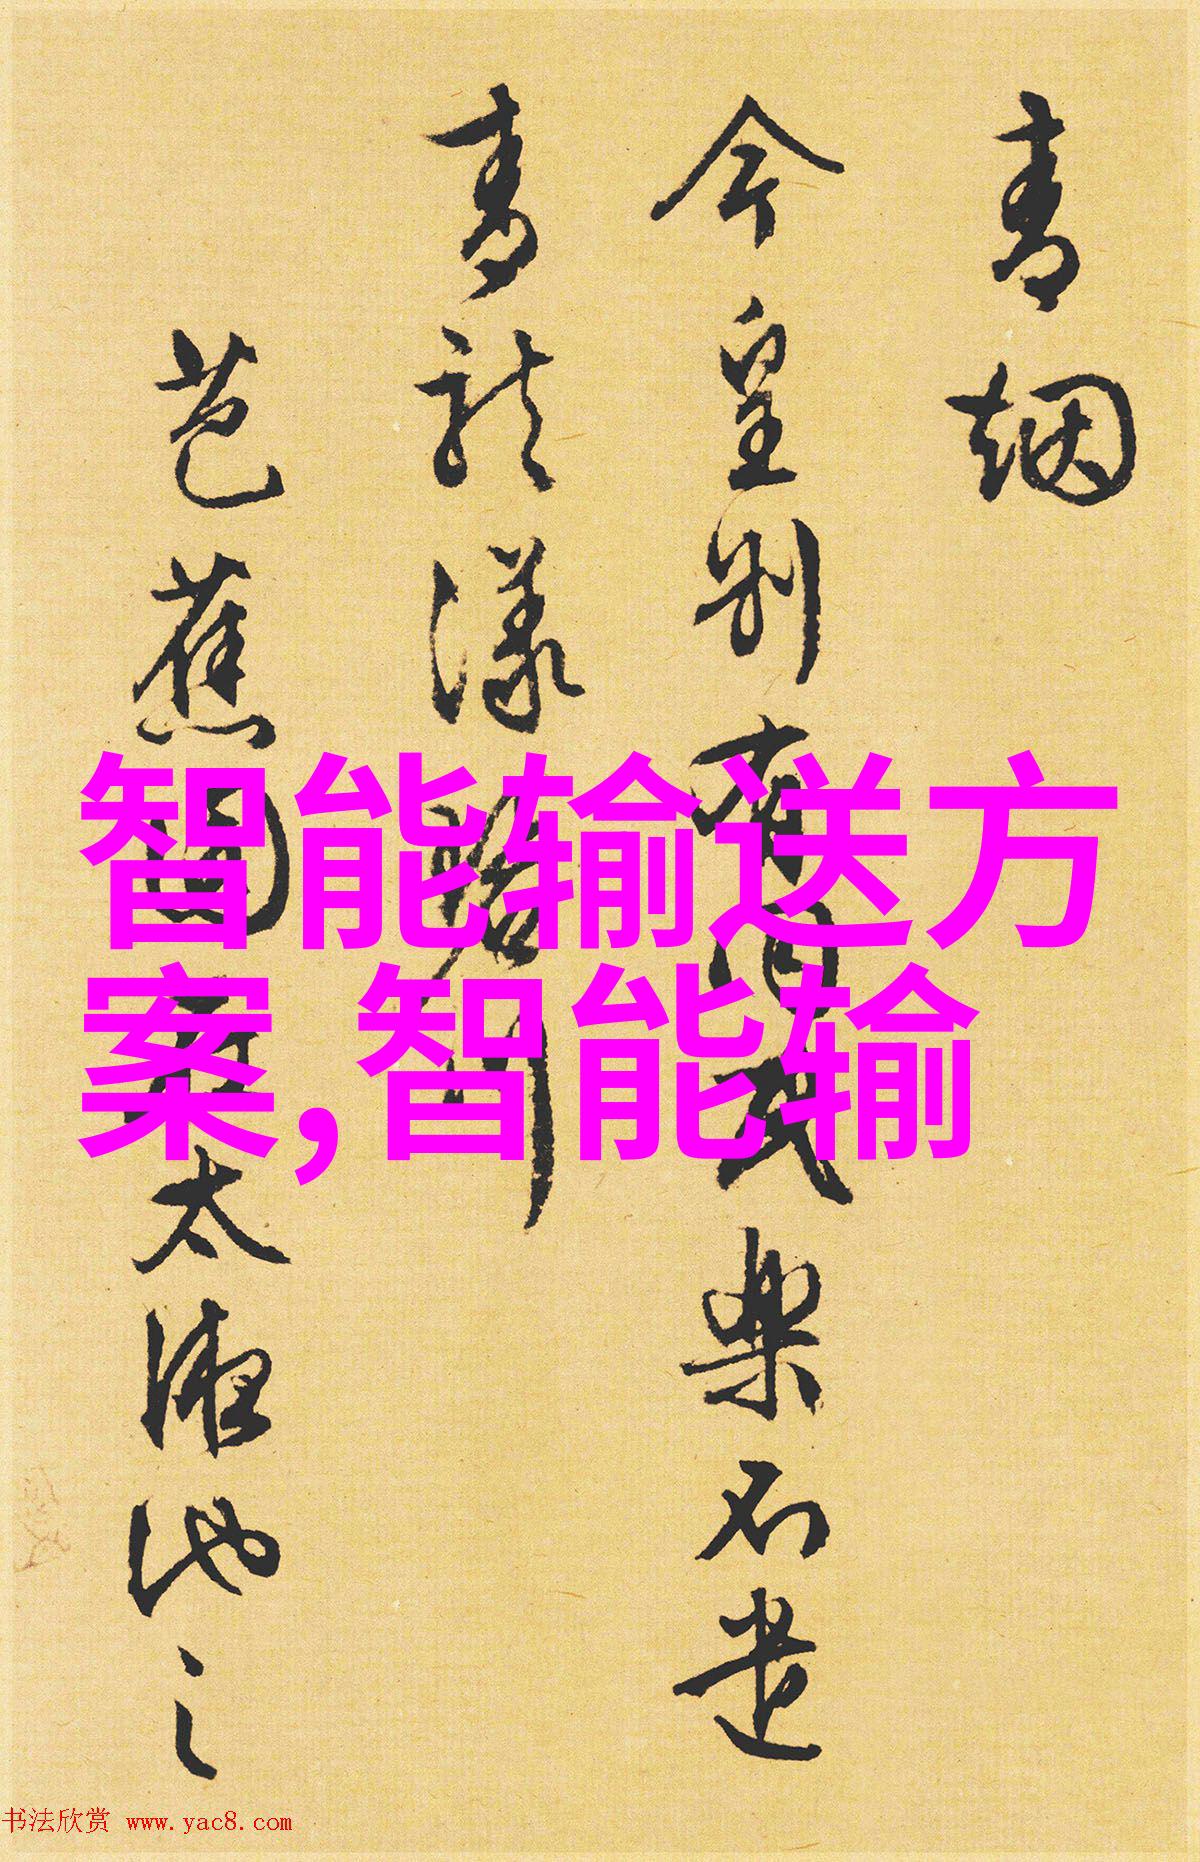 青烟
今皇别有
樂石遣
青龍漾
芭蕉
太液池之
智能输送方
案,智能输
书法欣赏 www.yac8.com